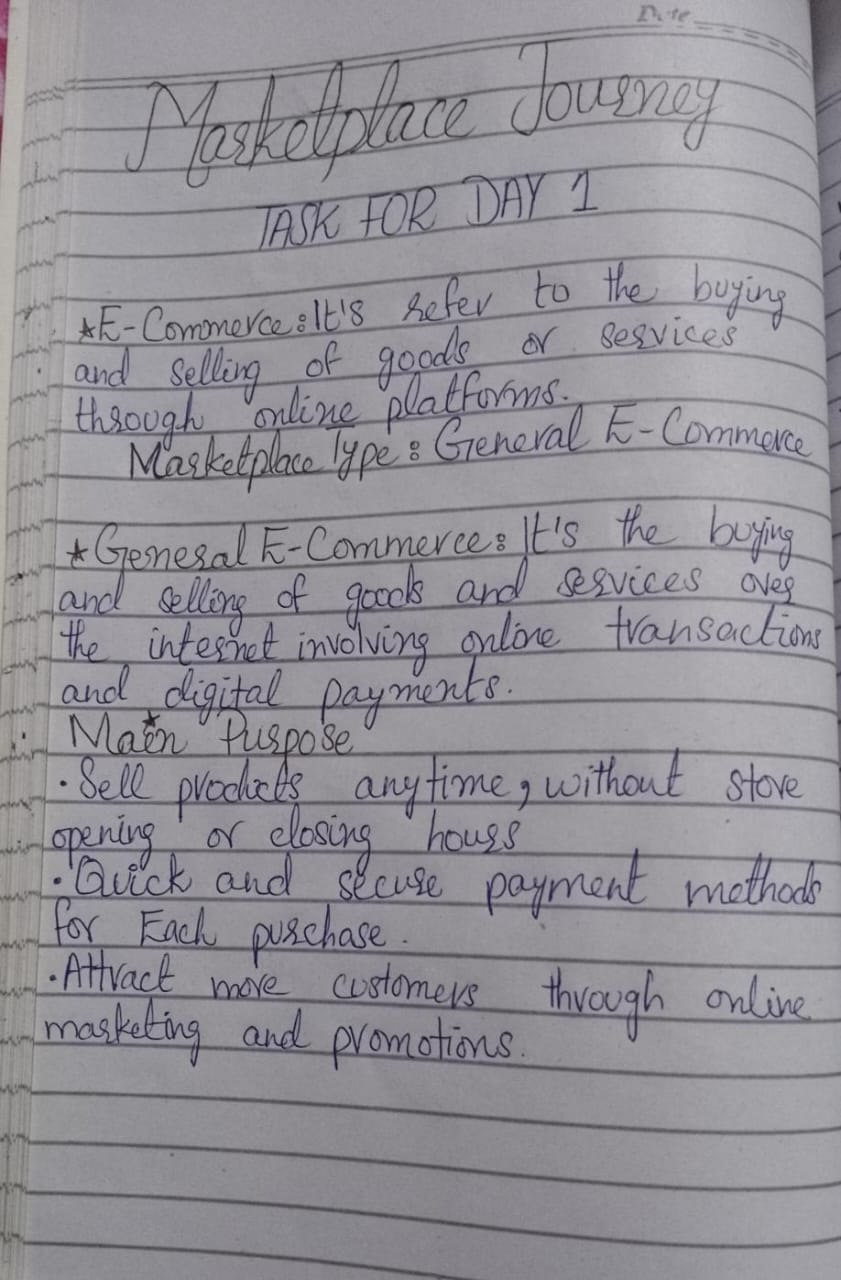 Date
Marketplace Journey
TASK FOR DAY 1
★E-Commerce: It's refer to the buying
and selling of goods or services
through online platforms.
Marketplace Type: General E-Commerce
★General E-Commerce: It's the buying
and selling of goods and services over
the internet involving online transactions
and digital payments.
Main Purpose
·Sell products anytime, without store
opening or closing hours
·Quick and secure payment methods
for Each purchase.
·Attract more customers through online
marketing and promotions.